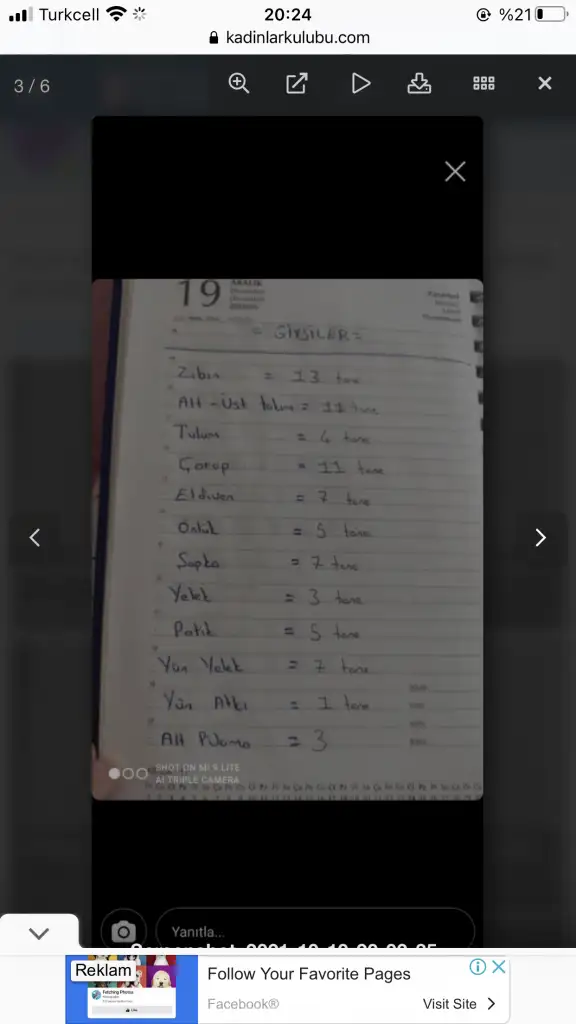 Turkcell 20:24 %21
kadinlarkulubu.com
3 / 6
19 ARALIK
= GİYSİLER =
Zıbın = 13 tane
Alt - Üst takım = 11 tane
Tulum = 4 tane
Çorap = 11 tane
Eldiven = 7 tane
Önlük = 5 tane
Şapka = 7 tane
Yelek = 3 tane
Patik = 5 tane
Yün Yelek = 7 tane
Yün Atkı = 1 tane
Alt Pijama = 3
SHOT ON MI 9 LITE
AI TRIPLE CAMERA
Yanıtla...
Reklam
Fetching Photos
Follow Your Favorite Pages
Facebook®
Visit Site